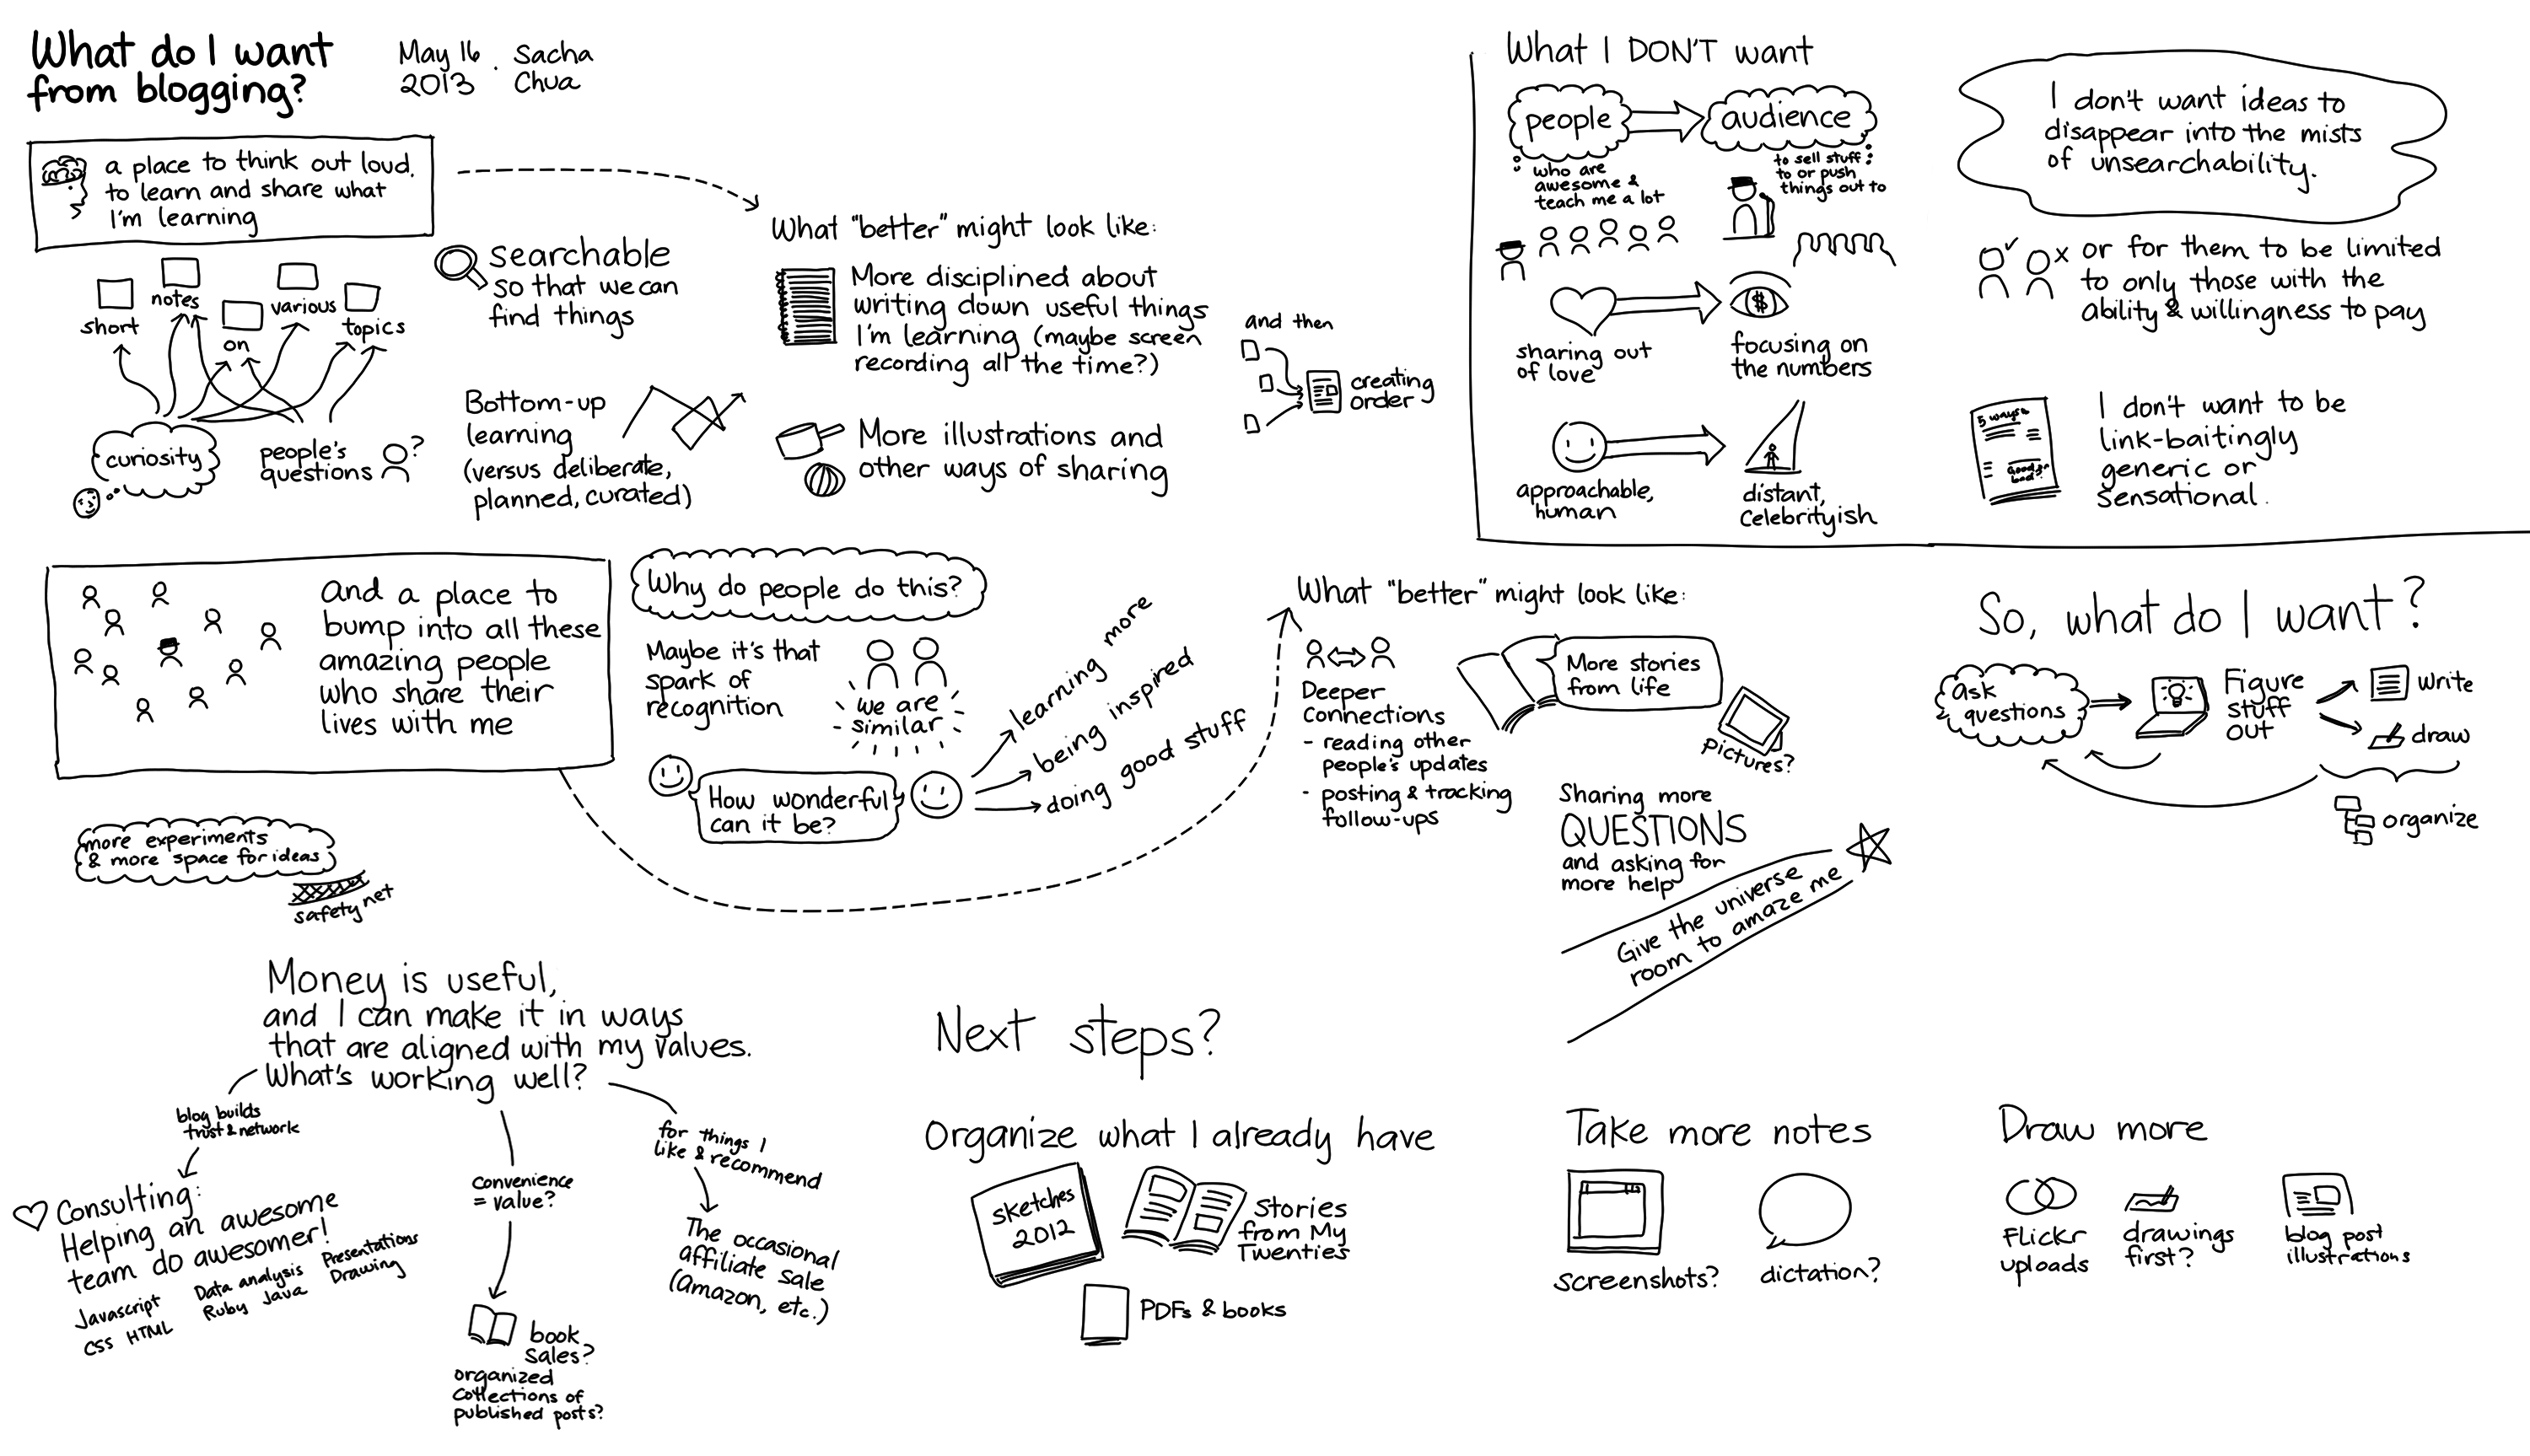 What do I want
from blogging?
May 16
2013
.
Sacha
Chua
a place to think out loud,
to learn and share what
I'm learning
short
notes
on
various
topics
curiosity
people's
questions
?
searchable
so that we can
find things
Bottom-up
learning
(versus deliberate,
planned, curated)
What "better" might look like:
More disciplined about
writing down useful things
I'm learning (maybe screen
recording all the time?)
and then
creating
order
More illustrations and
other ways of sharing
What I DON'T want
people
audience
who are
awesome &
teach me a lot
to sell stuff
to or push
things out to
sharing out
of love
$
focusing on
the numbers
approachable,
human
distant,
celebrityish
I don't want ideas to
disappear into the mists
of unsearchability.
or for them to be limited
to only those with the
ability & willingness to pay
5 ways
I don't want to be
link-baitingly
generic or
sensational.
And a place to
bump into all these
amazing people
who share their
lives with me
Why do people do this?
Maybe it's that
spark of
recognition
we are
similar
How wonderful
can it be?
learning more
being inspired
doing good stuff
more experiments
& more space for ideas
safety net
What "better" might look like:
Deeper
Connections
- reading other
people's updates
- posting & tracking
follow-ups
More stories
from life
pictures?
Sharing more
QUESTIONS
and asking for
more help
Give the universe
room to amaze me
So, what do I want?
ask
questions
Figure
stuff
out
write
draw
organize
Money is useful,
and I can make it in ways
that are aligned with my values.
What's working well?
blog builds
trust & network
Consulting:
Helping an awesome
team do awesomer!
Javascript
CSS HTML
Data analysis
Ruby Java
Presentations
Drawing
Convenience
= value?
book
sales?
organized
collections of
published posts?
for things I
like & recommend
The occasional
affiliate sale
(Amazon, etc.)
Next steps?
Organize what I already have
Sketches
2012
Stories
from My
Twenties
PDFs & books
Take more notes
screenshots?
dictation?
Draw more
Flickr
uploads
drawings
first?
blog post
illustrations